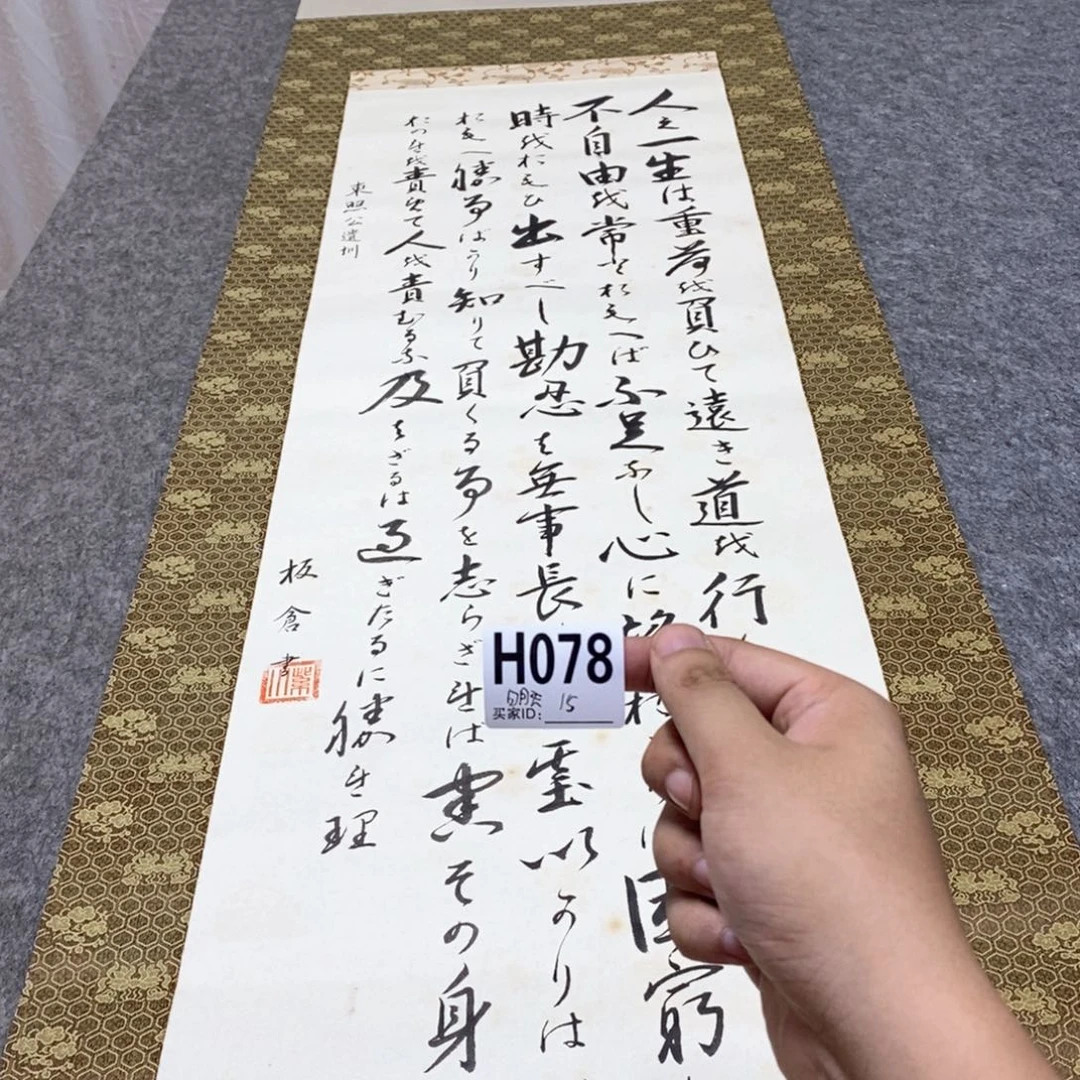 人之一生は重荷を負ひて遠き道を行
不自由を常とおもへば不足なし心に望 困窮
時をおもひ出すべし勘忍は無事長 基以かりは
おもへ勝事ばかり知りて負くる事を志らざれば害その身
おのれを責めて人を責むるな及はざるは過ぎたるに勝れ理
東照公遺訓
板倉書
H078
买家ID: 15